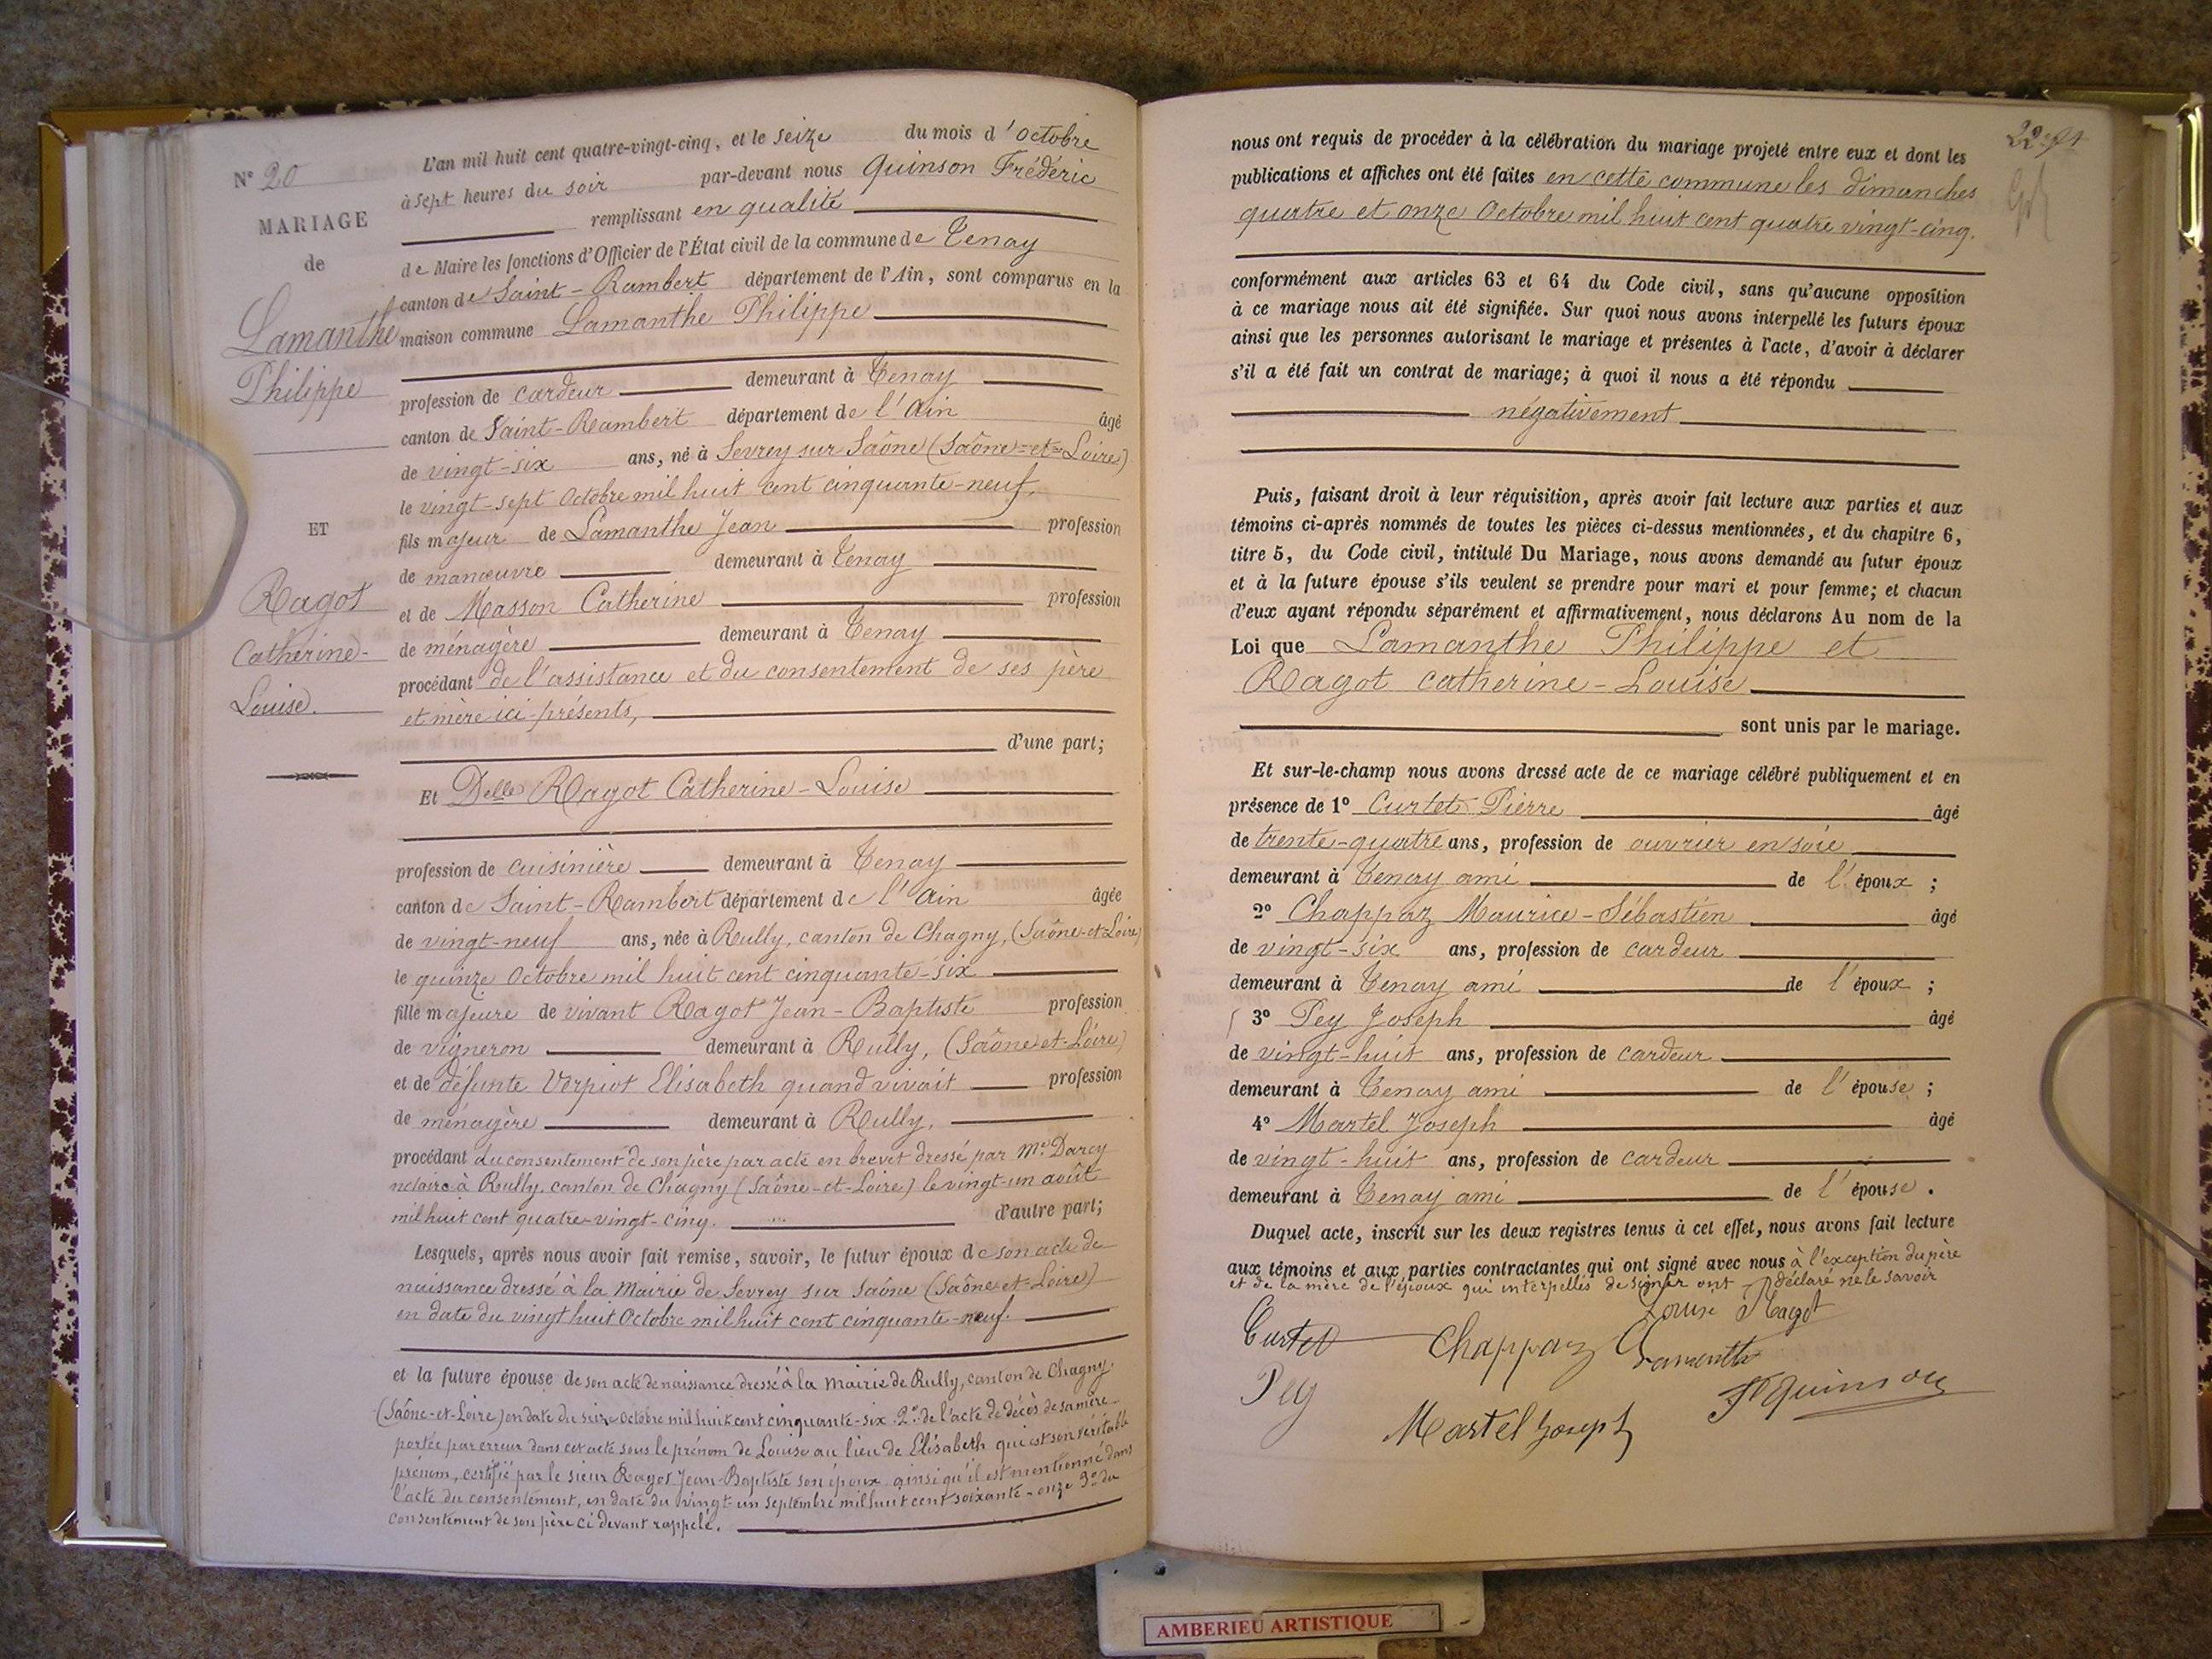 N° 20
MARIAGE
de
Lamanthe
Philippe
ET
Ragot
Catherine-
Louise.
L'an mil huit cent quatre-vingt-cinq, et le seize du mois d'octobre
à sept heures du soir par-devant nous Quinson Frédéric
remplissant en qualité
de Maire les fonctions d'Officier de l'État civil de la commune de Tenay
canton de Saint-Rambert département de l'Ain, sont comparus en la
maison commune Lamanthe Philippe
profession de cardeur demeurant à Tenay
canton de Saint-Rambert département de l'Ain âgé
de vingt-six ans, né à Sevrey sur Saône (Saône-et-Loire)
le vingt-sept Octobre mil huit cent cinquante-neuf,
fils majeur de Lamanthe Jean profession
de manœuvre demeurant à Tenay
et de Masson Catherine profession
de ménagère demeurant à Tenay
procédant de l'assistance et du consentement de ses père
et mère ici présents,
d'une part;
Et Delle Ragot Catherine-Louise
profession de cuisinière demeurant à Tenay
canton de Saint-Rambert département de l'Ain âgée
de vingt-neuf ans, née à Rully, canton de Chagny, (Saône-et-Loire)
le quinze Octobre mil huit cent cinquante-six
fille majeure de vivant Ragot Jean-Baptiste profession
de vigneron demeurant à Rully, (Saône-et-Loire)
et de défunte Verpiot Elisabeth quand vivait profession
de ménagère demeurant à Rully,
procédant du consentement de son père par acte en brevet dressé par Me Darcy
notaire à Rully, canton de Chagny (Saône-et-Loire) le vingt-un août
mil huit cent quatre-vingt-cinq. d'autre part;
Lesquels, après nous avoir fait remise, savoir, le futur époux de son acte de
naissance dressé à la Mairie de Sevrey sur Saône (Saône-et-Loire)
en date du vingt huit Octobre mil huit cent cinquante-neuf.
et la future épouse de son acte de naissance dressé à la Mairie de Rully, canton de Chagny.
(Saône-et-Loire) en date du seize Octobre mil huit cent cinquante-six. 2° de l'acte de décès de sa mère
portée par erreur dans cet acte sous le prénom de Louise au lieu de Elisabeth qui est son véritable
prénom, certifié par le sieur Ragot Jean-Baptiste son époux ainsi qu'il est mentionné dans
l'acte du consentement, en date du vingt-un septembre mil huit cent soixante-onze 3° du
consentement de son père ci devant rappelé.
nous ont requis de procéder à la célébration du mariage projeté entre eux et dont les
publications et affiches ont été faites en cette commune les dimanches
quatre et onze Octobre mil huit cent quatre vingt-cinq.
conformément aux articles 63 et 64 du Code civil, sans qu'aucune opposition
à ce mariage nous ait été signifiée. Sur quoi nous avons interpellé les futurs époux
ainsi que les personnes autorisant le mariage et présentes à l'acte, d'avoir à déclarer
s'il a été fait un contrat de mariage; à quoi il nous a été répondu
négativement
Puis, faisant droit à leur réquisition, après avoir fait lecture aux parties et aux
témoins ci-après nommés de toutes les pièces ci-dessus mentionnées, et du chapitre 6,
titre 5, du Code civil, intitulé Du Mariage, nous avons demandé au futur époux
et à la future épouse s'ils veulent se prendre pour mari et pour femme; et chacun
d'eux ayant répondu séparément et affirmativement, nous déclarons Au nom de la
Loi que Lamanthe Philippe et
Ragot Catherine-Louise
sont unis par le mariage.
Et sur-le-champ nous avons dressé acte de ce mariage célébré publiquement et en
présence de 1° Curtet Pierre âgé
de trente-quatre ans, profession de ouvrier en soie
demeurant à Tenay ami de l'époux ;
2° Chappaz Maurice-Sébastien âgé
de vingt-six ans, profession de cardeur
demeurant à Tenay ami de l'époux ;
3° Pey Joseph âgé
de vingt-huit ans, profession de cardeur
demeurant à Tenay ami de l'épouse ;
4° Martel Joseph âgé
de vingt-huit ans, profession de cardeur
demeurant à Tenay ami de l'épouse .
Duquel acte, inscrit sur les deux registres tenus à cet effet, nous avons fait lecture
aux témoins et aux parties contractantes qui ont signé avec nous à l'exception du père
et de la mère de l'époux qui interpellés de signer ont déclaré ne le savoir
Louise Ragot
Curtet Chappaz Lamanthe
Pey Fc Quinson
Martel Joseph
AMBERIEU ARTISTIQUE